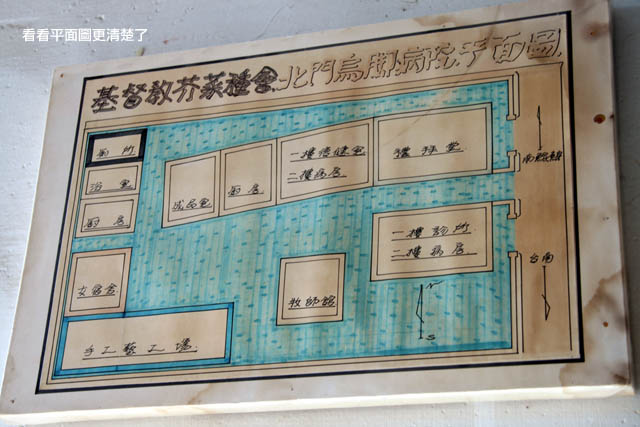 看看平面圖更清楚了
基督教芥菜種會北門烏腳病院平面圖
廁所
浴室
廚房
女宿舍
手工藝工場
成品室
廚房
一樓復健室
二樓病房
禮拜堂
一樓診所
二樓病房
牧師館
南鯤鯓
台南
N
S